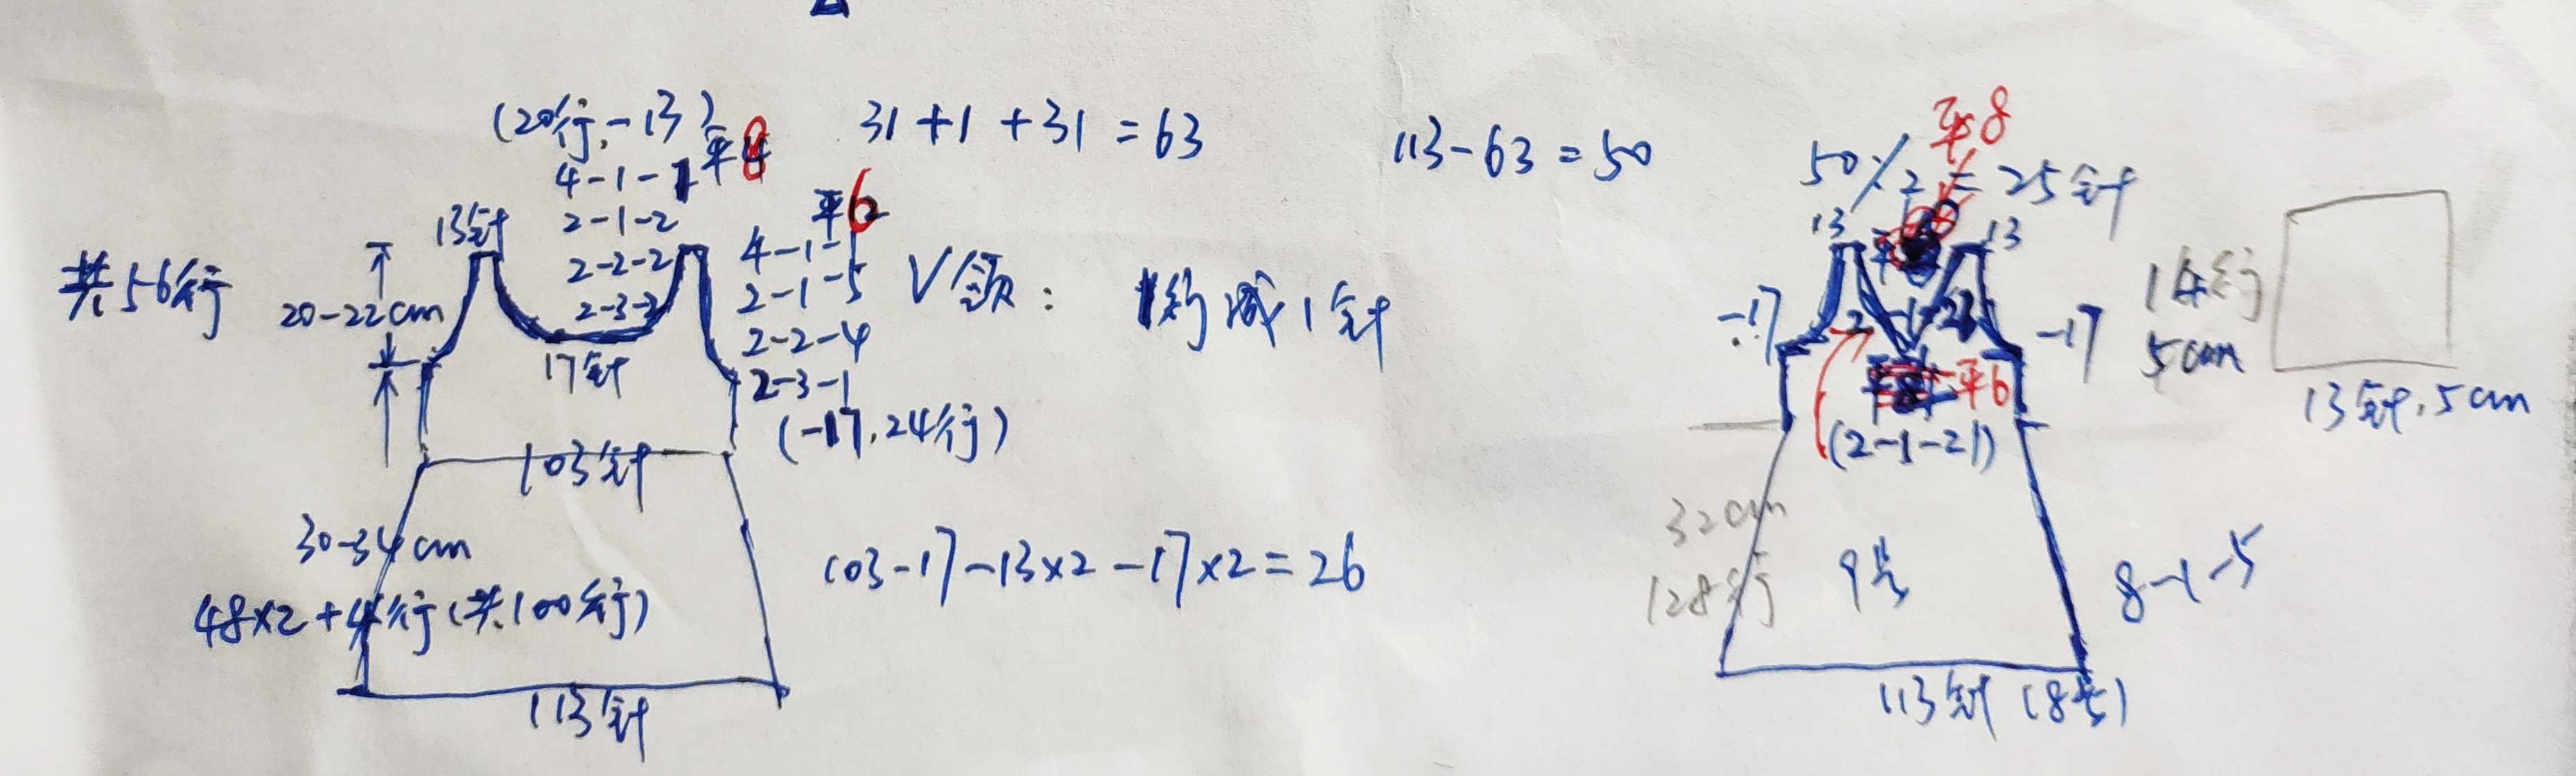 (20行,-13)
4-1-1 平8
2-1-2
2-2-2
2-3-2
13针
17针
共56行
20-22cm
平6
4-1-1
2-1-5
2-2-4
2-3-1
(-17,24行)
103针
30-34cm
48×2+4行(共100行)
113针
31+1+31=63
V领:
1行减1针
103-17-13×2-17×2=26
113-63=50
平8
50/2=25针
13
13
-17
-17
平6
(2-1-21)
32cm
128行
9号
8-1-5
113针(8号)
14行
5cm
13针.5cm